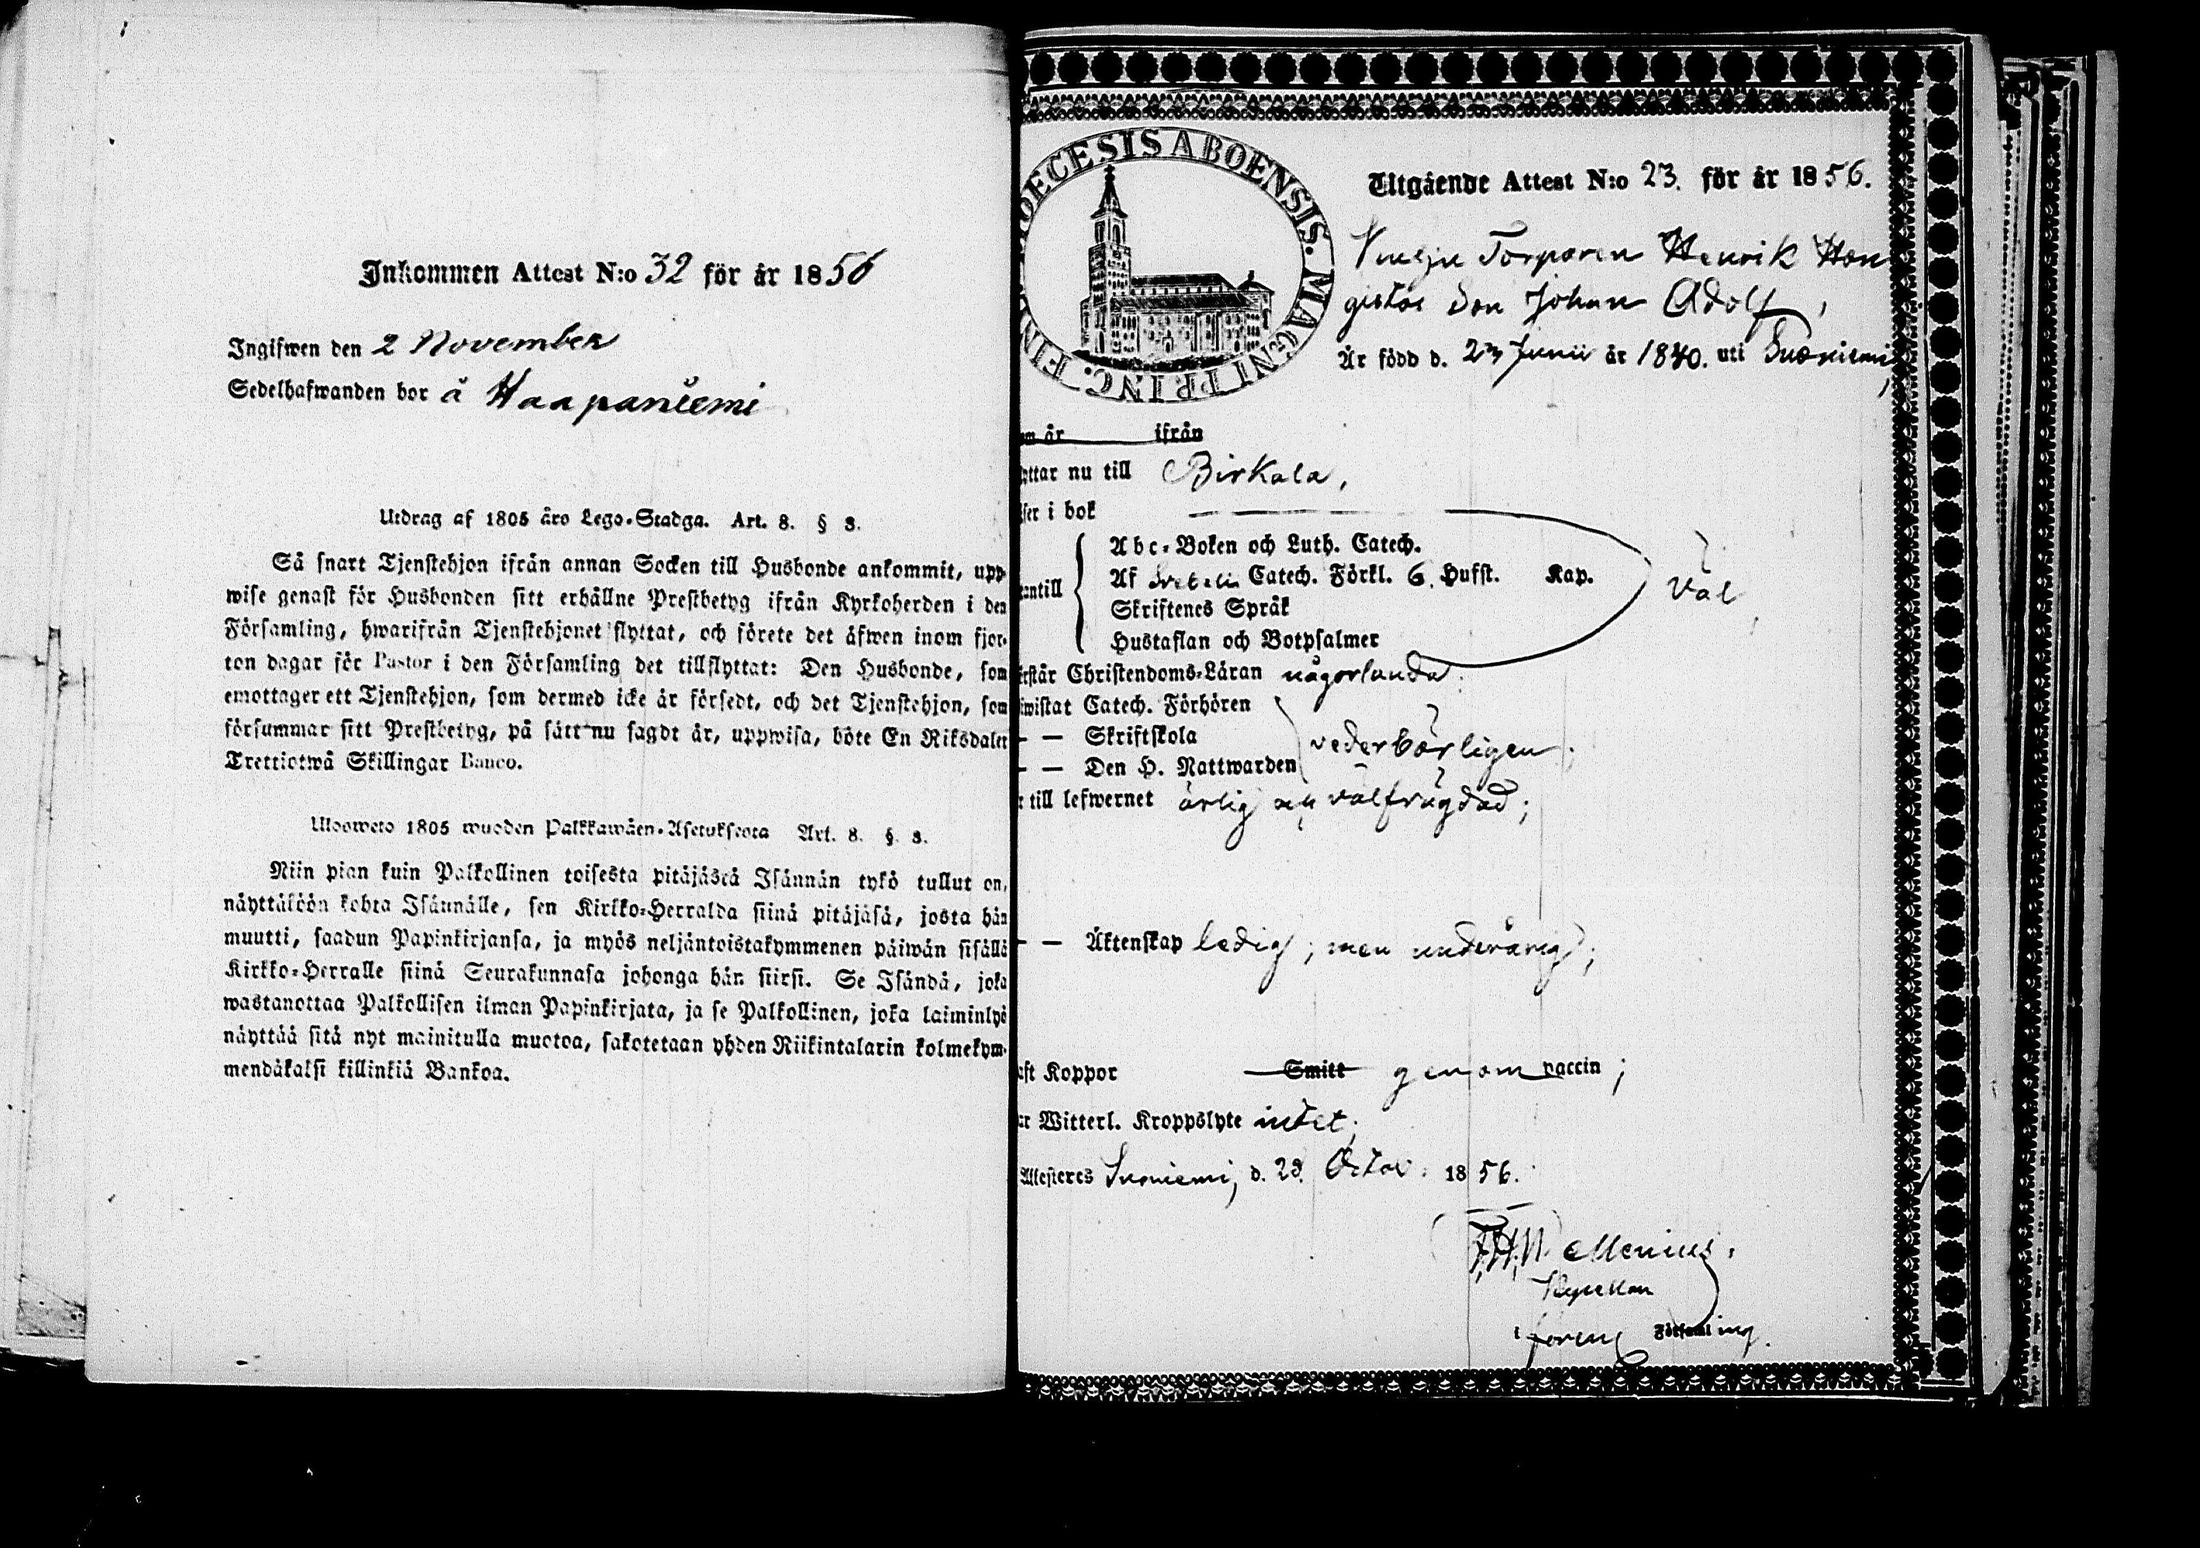 Inkommen Attest N:o 32 för år 1856
Ingifwen den 2 November
Sedelhafwanden bor å Haapaniemi
Utdrag af 1805 års Lego-Stadga. Art. 8. § 3.
Så snart Tjenstehjon ifrån annan Socken till Husbonde ankommit, upp-
wise genast för Husbonden sitt erhållne Prestbetyg ifrån Kyrkoherden i den
Församling, hwarifrån Tjenstehjonet flyttat, och förete det äfwen inom fjor-
ton dagar för Pastor i den Församling det tillflyttat: Den Husbonde, som
emottager ett Tjenstehjon, som dermed icke är försedt, och det Tjenstehjon, som
försummar sitt Prestbetyg, på sätt nu sagdt är, uppwisa, böte En Riksdaler
Trettiotwå Skillingar Banco.
Ulosweto 1805 wuoden Palkkawäen-Asetuksesta Art. 8. § 3.
Niin pian kuin Palkollinen toisesta pitäjästä Isännän tykö tullut on,
näyttäköön kohta Isännälle, sen Kirkko-Herralda siinä pitäjäsä, josta hän
muutti, saadun Papinkirjansa, ja myös neljäntoistakymmenen päiwän sisällä
Kirkko-Herralle siinä Seurakunnasa johonga hän siirsi. Se Isändä, joka
wastanottaa Palkollisen ilman Papinkirjata, ja se Palkollinen, joka laiminlyö
näyttää sitä nyt mainitulla muotoa, sakotetaan yhden Riikintalarin kolmekym-
mendäkaksi killinkiä Bankoa.
OECESIS ABOENSIS. MAGNI PRINC. FIN
Utgående Attest N:o 23. för år 1856.
Torparen Henrik Han
gistos Son Johan Adolf,
Är född d. 23 Junii år 1840. uti Suoniemi,
om år ifrån
yttar nu till Birkala,
ser i bok
Abc-Boken och Luth. Catech.
antill Af Svebelii Catech. Förkl. 6. Hufst. Kap. väl,
Skriftenes Språk
Hustaflan och Botpsalmer
erstår Christendoms-Läran någorlunda.
iwistat Catech. Förhören
— — Skriftskola vederbörligen;
— — Den H. Nattwarden
r till lefwernet ärlig och välfrägdad;
— — Äktenskap ledig; men underårig;
aft Koppor Smitt genom vaccin;
ar Witterl. Kroppslyte intet;
Attesteres Suoniemi, d. 29. Octob. 1856.
F.H.N. Menius.
Kapellan
i Församling.